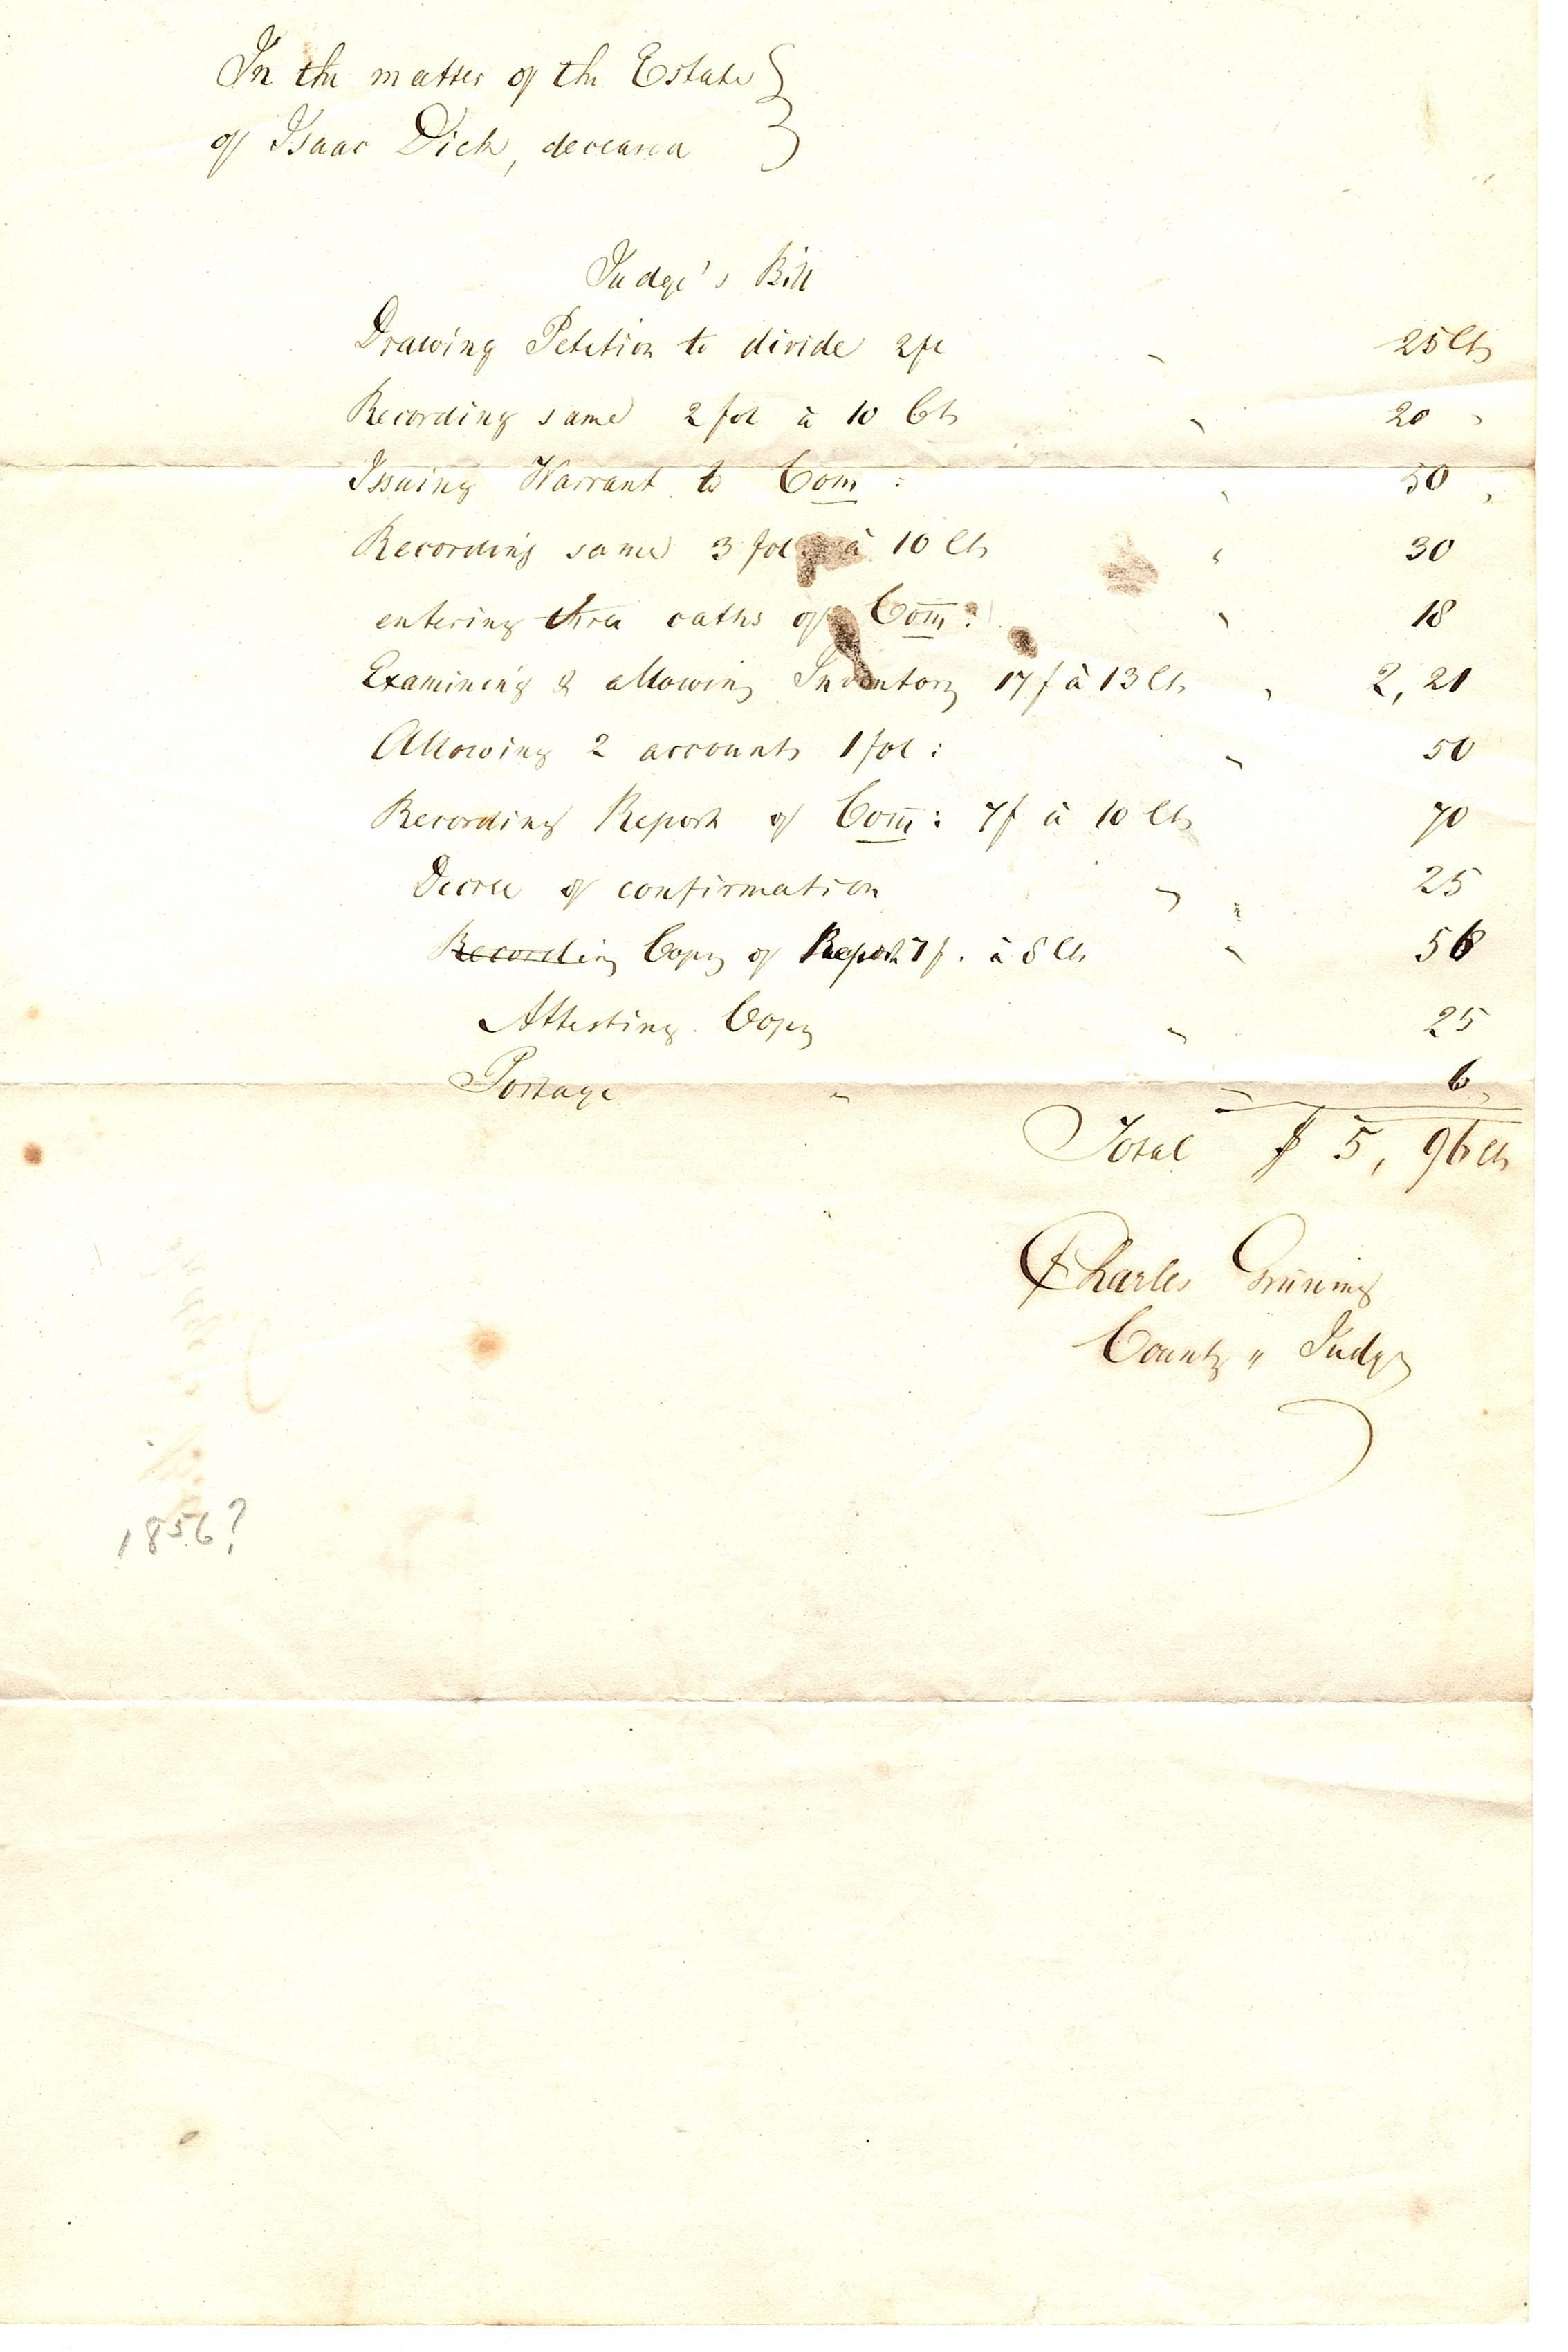 In the matter of the Estate
of Isaac Dick, deceased
Judge's Bill
Drawing Petition to divide 2 fo 25 Cts
Recording same 2 fol à 10 Cts 20
Issuing Warrant to Com: 50
Recording same 3 fol à 10 Cts 30
entering three oaths of Com: 18
Examining & allowing Inventory 17 f à 13 Cts 2,21
Allowing 2 accounts 1 fol: 50
Recording Report of Com: 7 f à 10 Cts 70
Decree of confirmation 25
Recording Copy of Report 7 f. à 8 Cts 56
Attesting Copy 25
Postage 6
Total $ 5, 96 cts
Charles
County " Judge
1856?